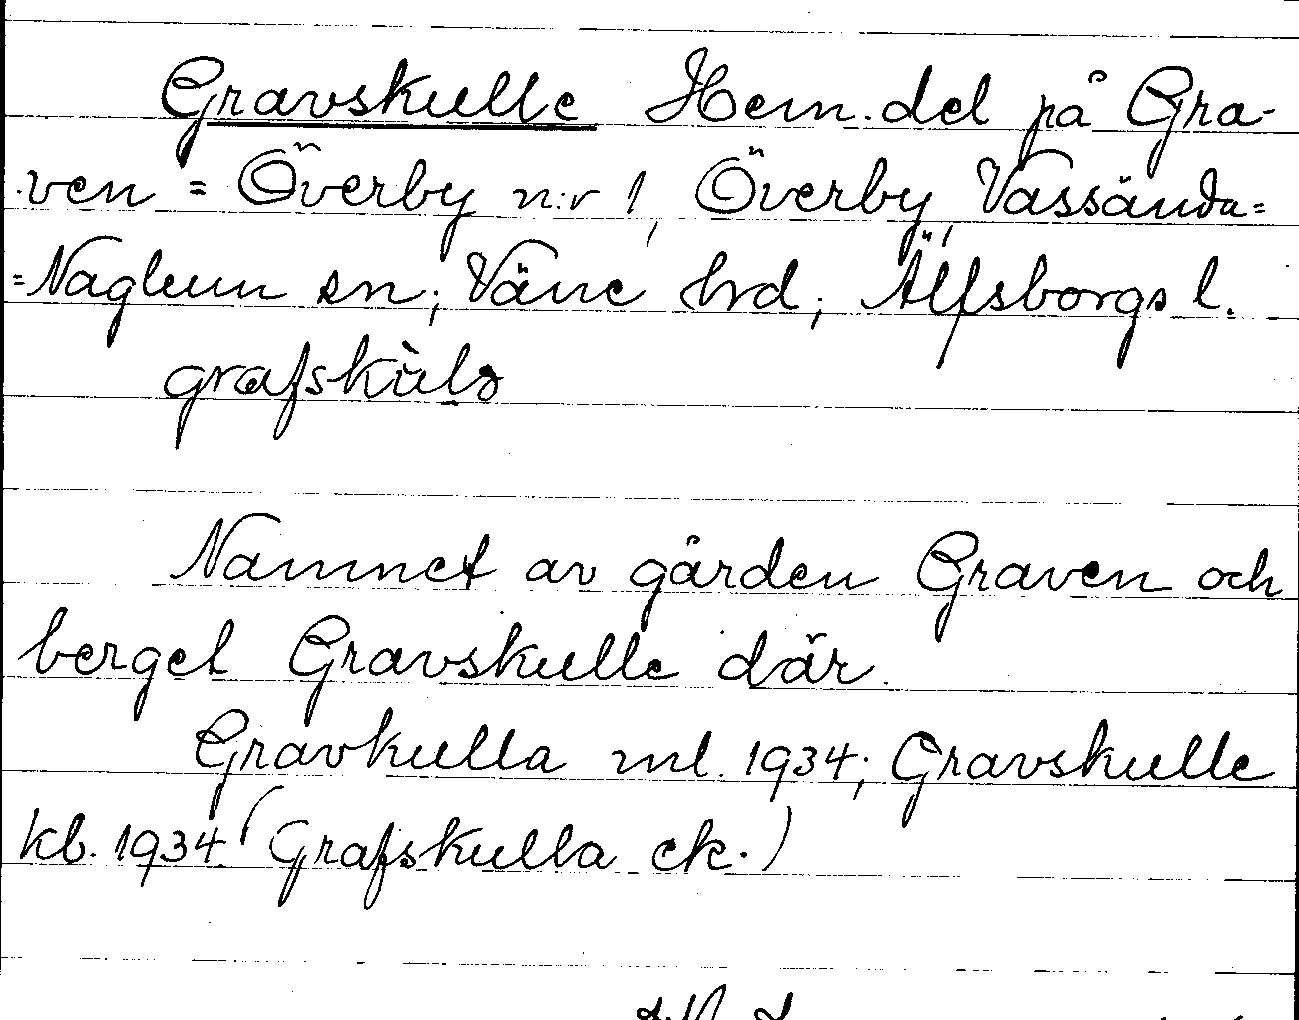 Gravskulle Hem. del på Gra-
ven = Överby n:r 1, Överby, Vassända=
=Naglum sn; Väne hrd; Älfsborgs l.
grafskùlə
Namnet av gården Graven och
berget Gravskulle där.
Gravkulla ml. 1934; Gravskulle
kb. 1934 (Grafskulla ek.)